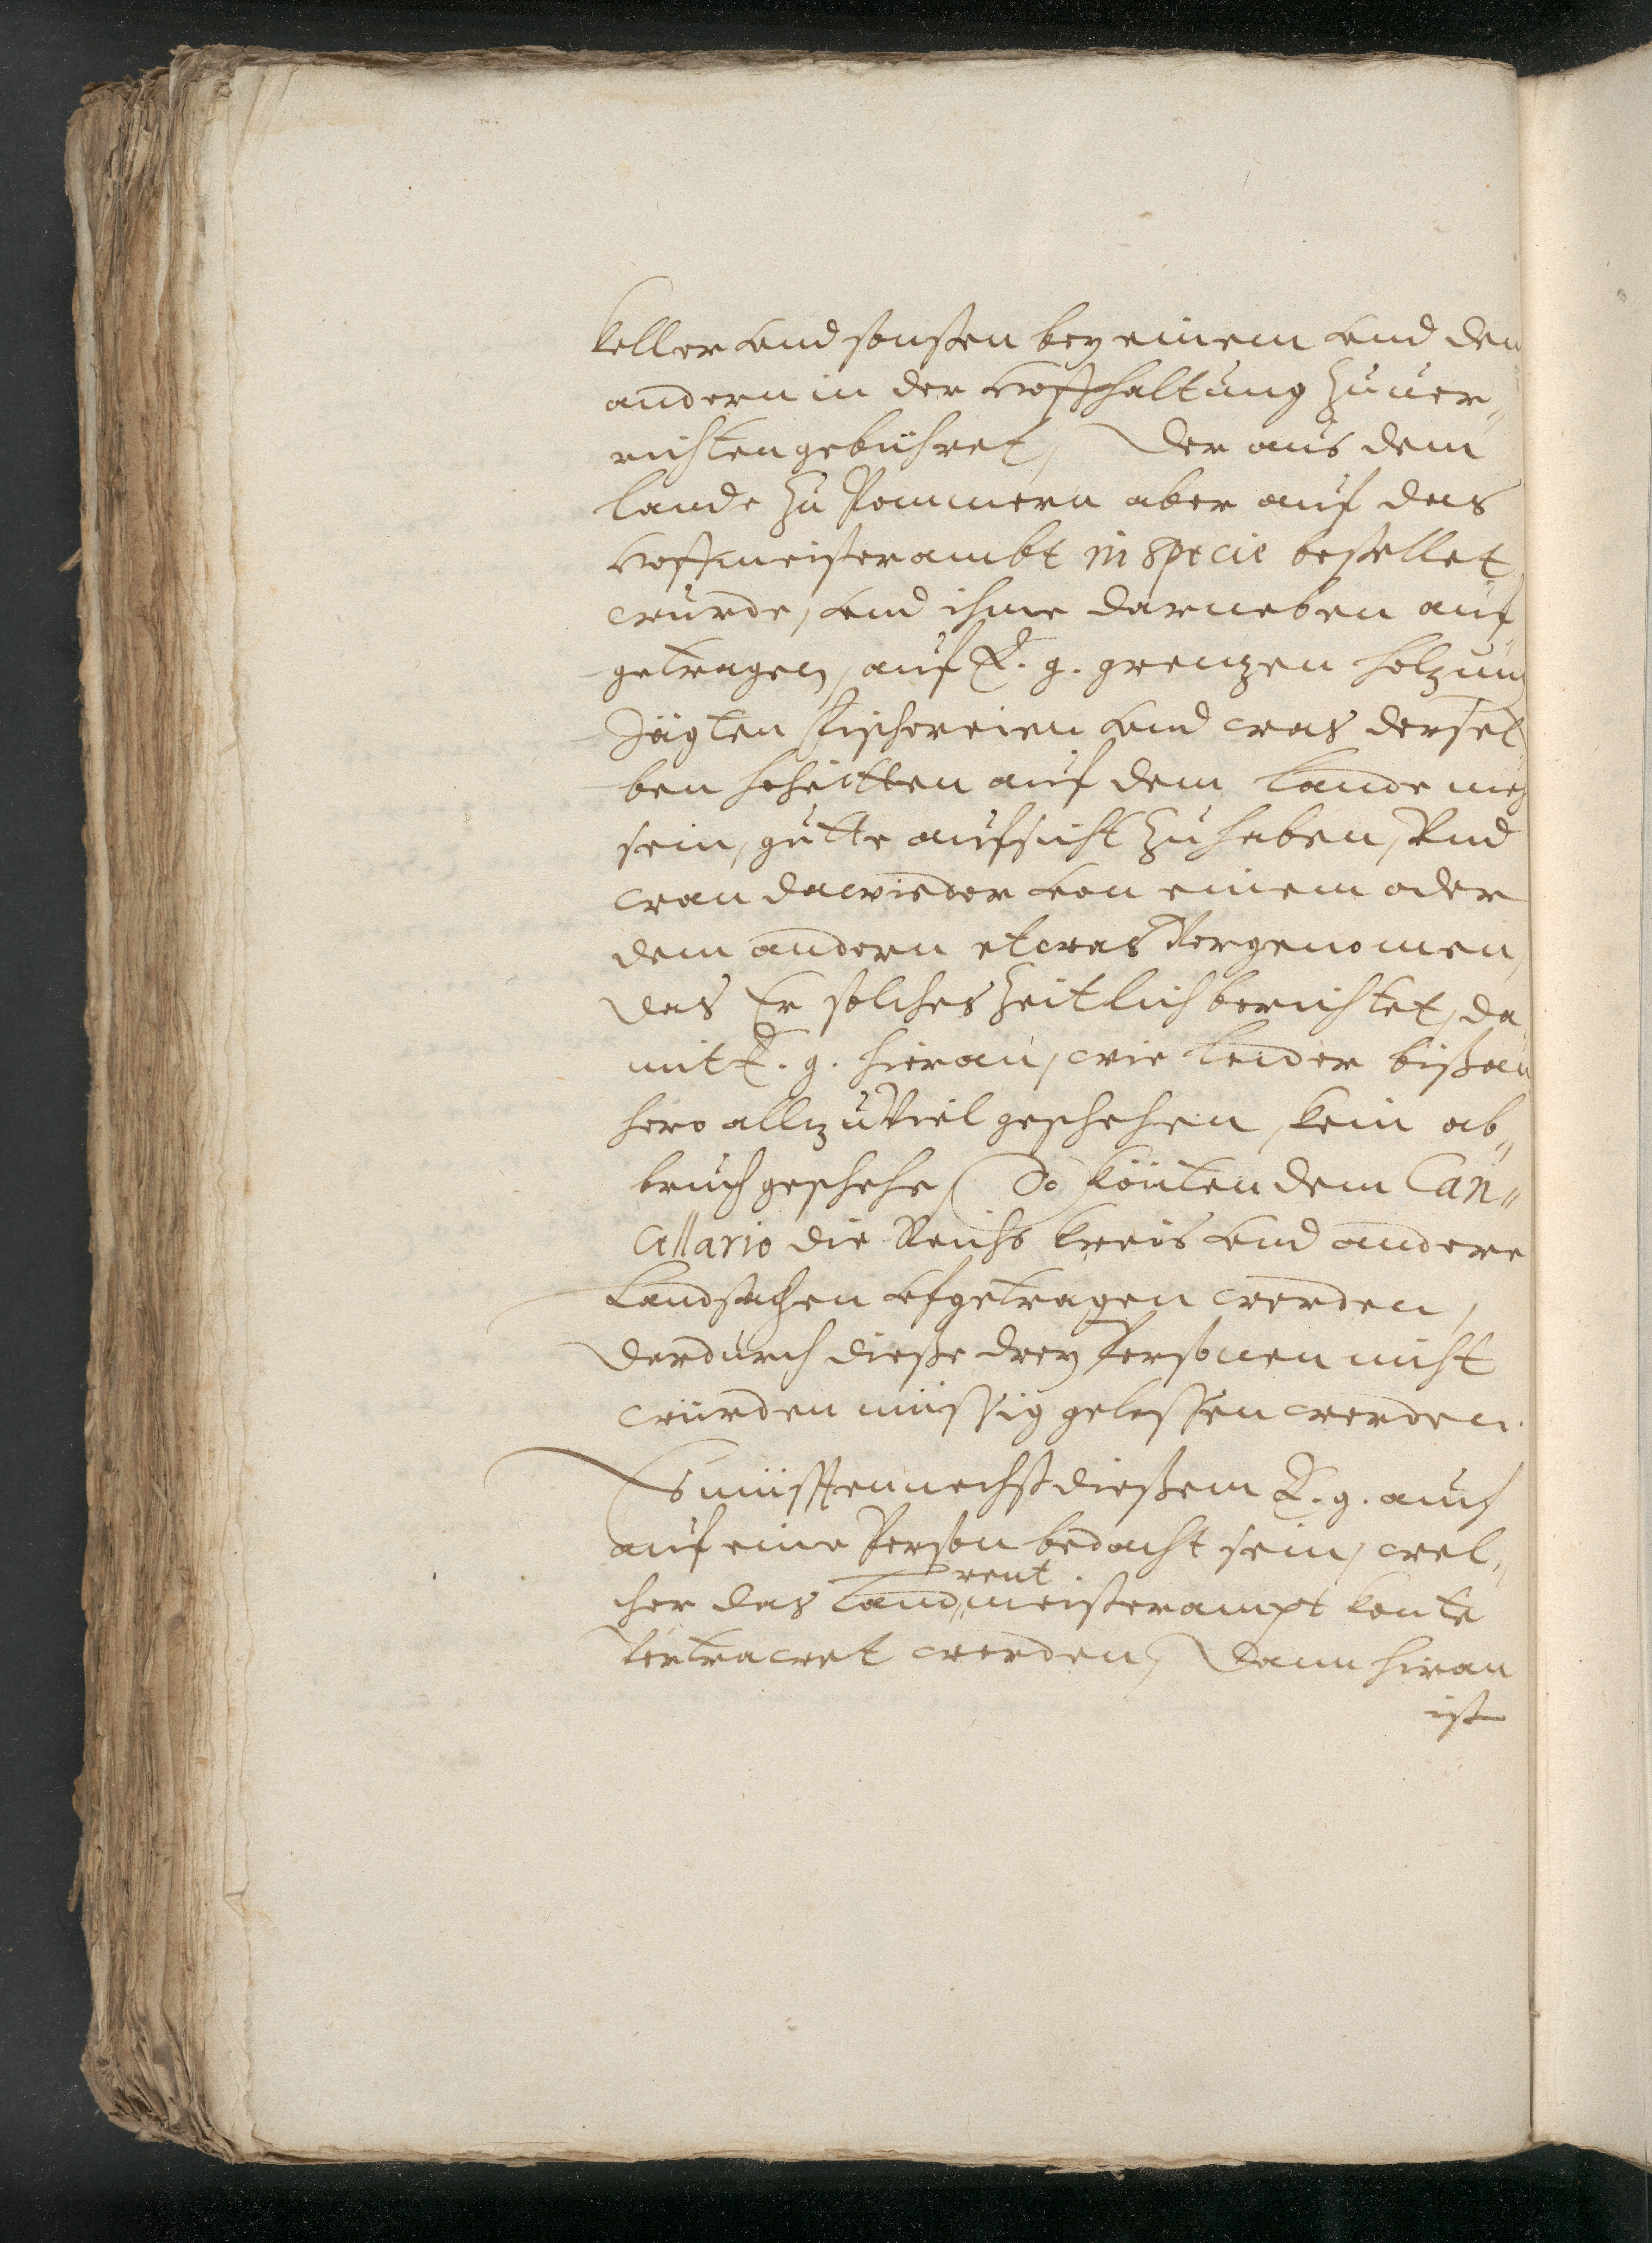 Keller vnd sonsten bey einem vnd den
andern in der Hoffhaltung Zuuer„
richten gebuhret, Der aus dem
Lande Zu Pommern aber auf das
Hoffmeisterambt in specie bestellet
wurde, vnd ihme darneben auf
getragen, auf E. g. grenzen holzung
Jägten Fischereien vnd was dersel
ben hoheitten auf dem Lande mehr
sein, gutte aufsicht Zuhaben, Vnd
wan dawieder von einem oder
dem andern etwas Vorgenomen,
das Er solches Zeitlich berichtet, da
mit E. g. hieran, wie leider bißan
hero allzu Viel geschehen, kein ab„
bruch geschehe, So könten dem Can„
cellario die Reichs Kreis vnd andere
Landsachen vfgetragen werden,
Dardurch dieße drey Personen nicht
würden müssig gelassen werden.
Es müssten nechst dießem E. g. auch
auf eine Person bedacht sein, wel„
cher das Land rent meisterampt konte
Vertrawet werden, Dann hieran
ist